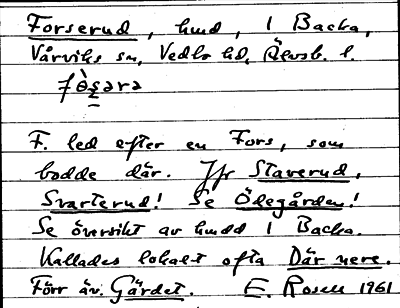 Forserud, hmd, 1 Backa,
Vårviks sn, Vedbo hd, Älvsb. l.
fòşərə
F. led efter en Fors, som
bodde där. Jfr Staverud,
Svarterud! Se Ödegården!
Se översikt av hmdd 1 Backa.
Kallades lokalt ofta Där nere.
Förr äv. Gärdet. E. Rosell 1961